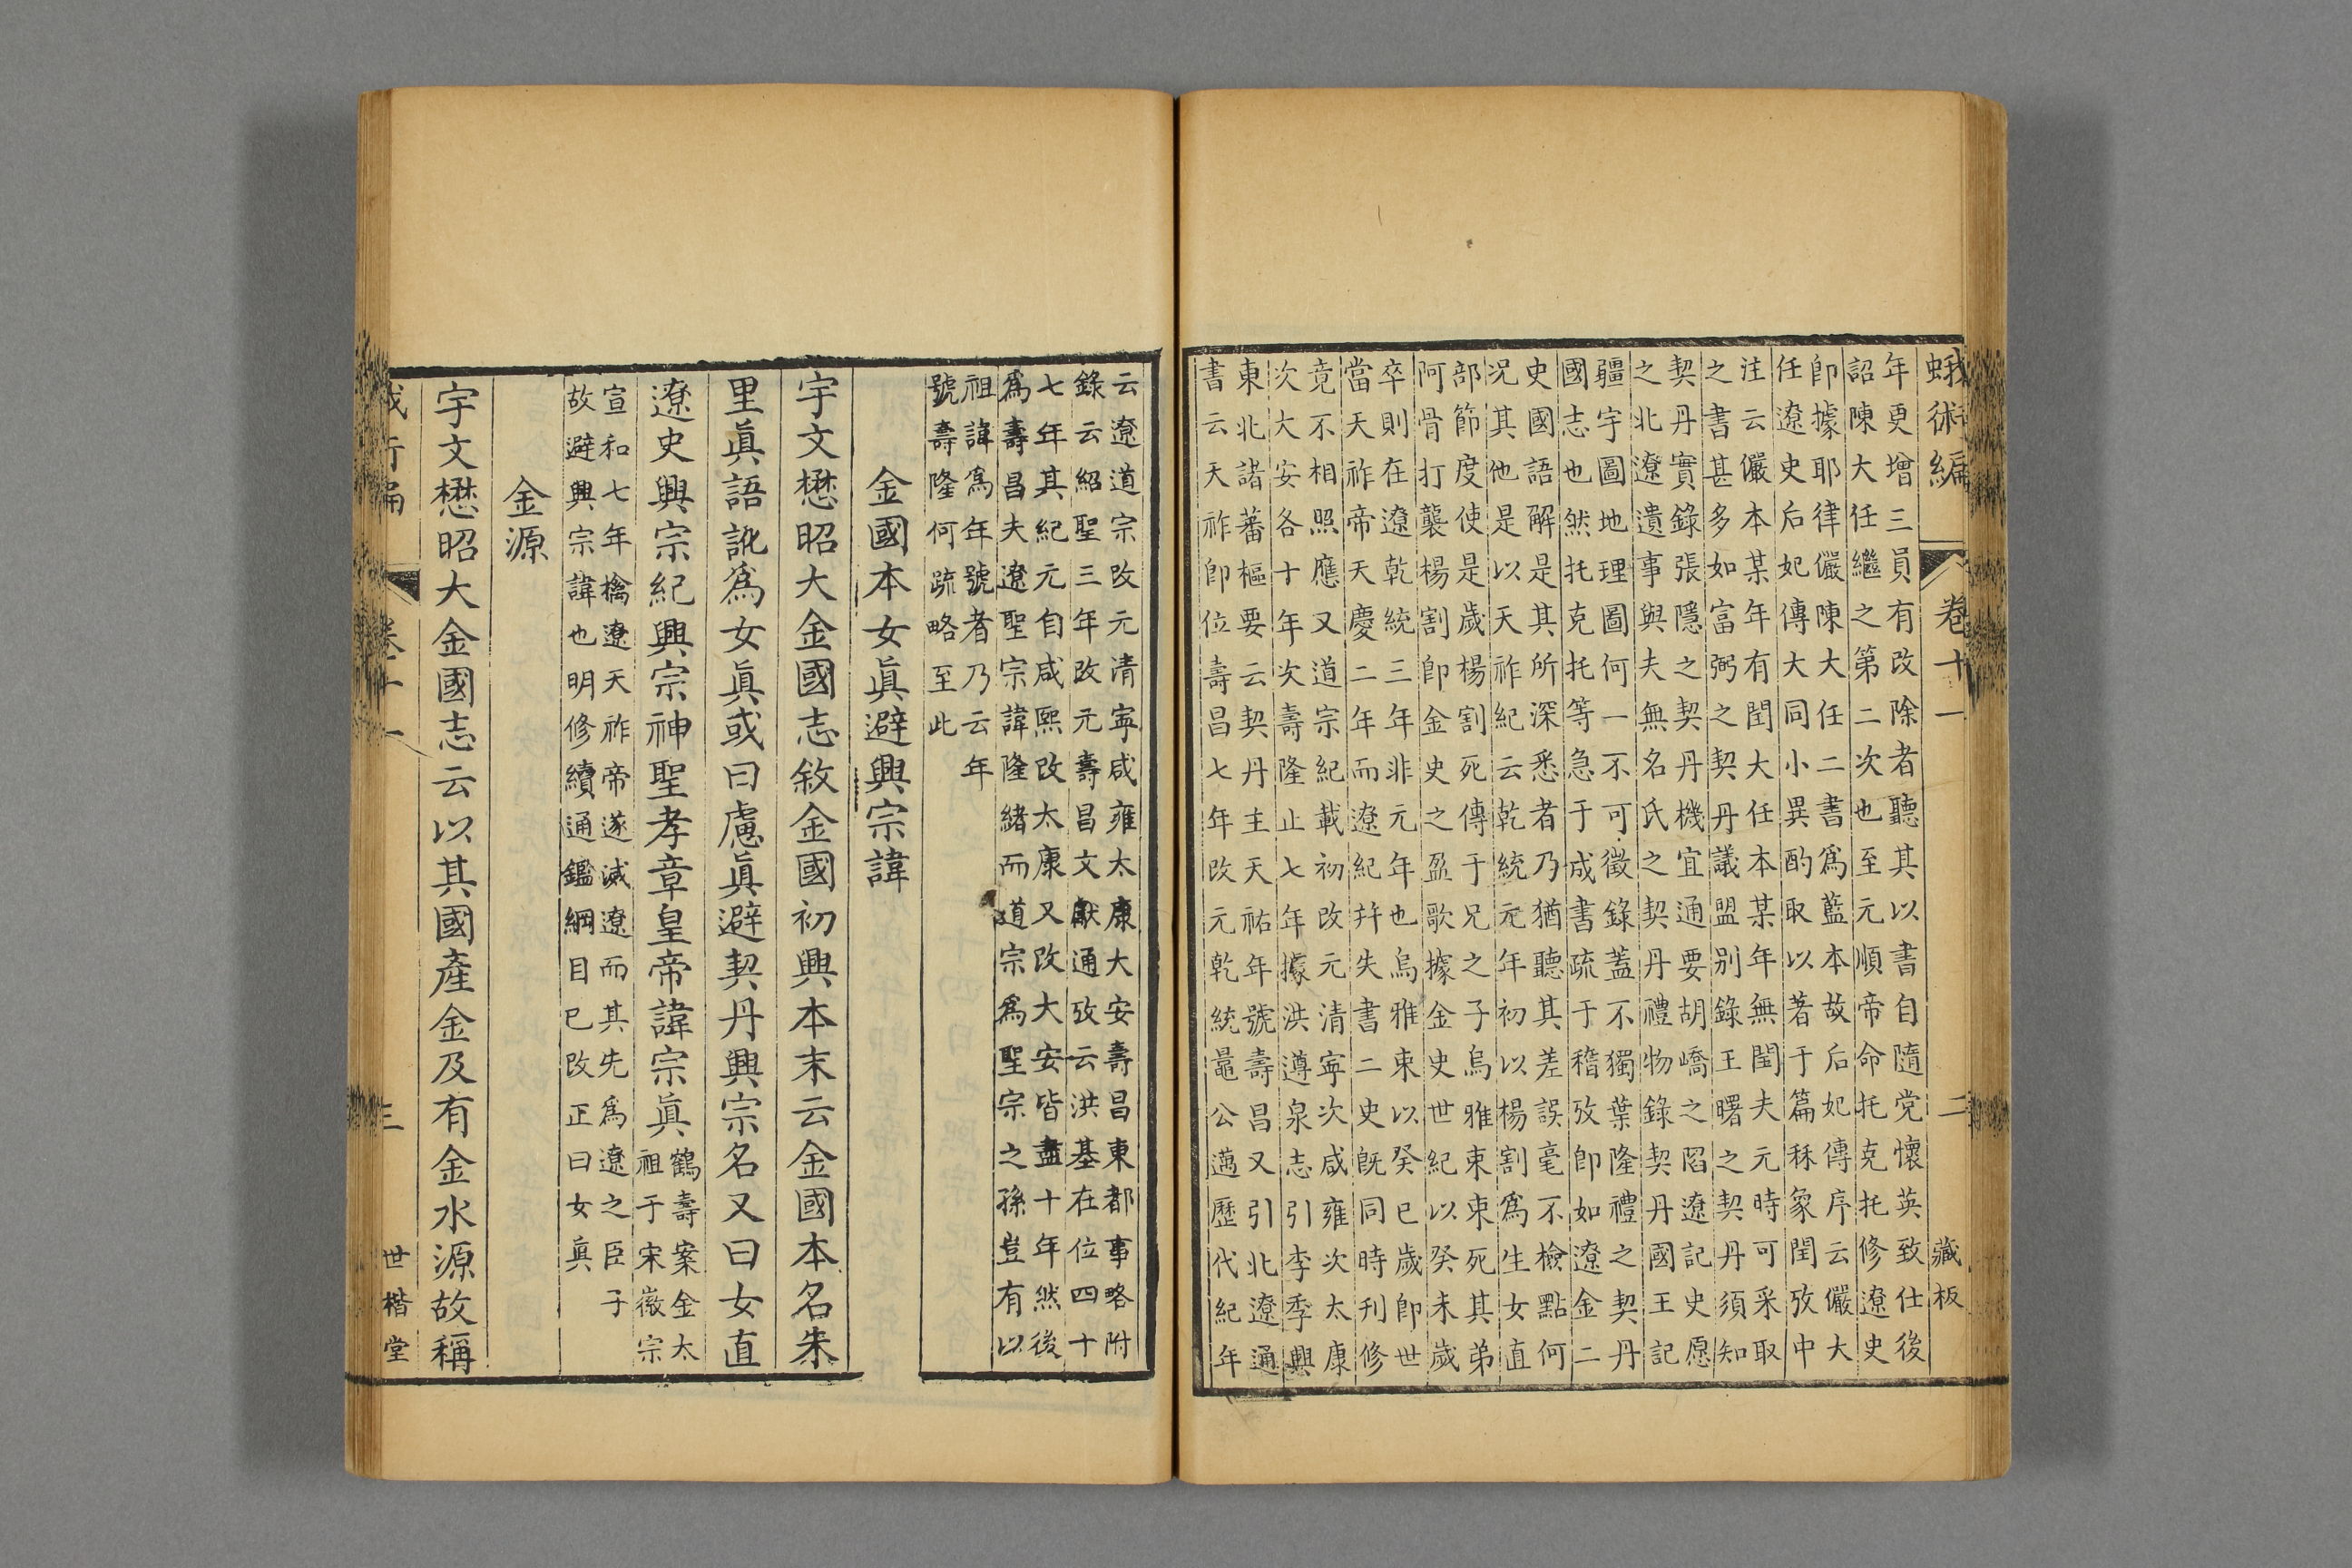 蛾術編 卷十一 二 藏板
年更增三員有改除者聽其以書自隨党懷英致仕後
詔陳大任繼之第二次也至元順帝命托克托修遼史
卽據耶律儼陳大任二書爲藍本故后妃傳序云儼大
任遼史后妃傳大同小異酌取以著于篇秝象閏攷中
注云儼本某年有閏大任本某年無閏夫元時可采取
之書甚多如富弼之契丹議盟別錄王曙之契丹須知
契丹實錄張隱之契丹機宜通要胡嶠之䧟遼記史愿
之北遼遺事與夫無名氏之契丹禮物錄契丹國王記
疆宇圖地理圖何一不可徵錄蓋不獨葉隆禮之契丹
國志也然托克托等急于成書疏于稽攷卽如遼金二
史國語解是其所深悉者乃猶聽其差誤毫不檢點何
况其他是以天祚紀云乾統元年初以楊割爲生女直
部節度使是歲楊割死傳于兄之子烏雅束束死其弟
阿骨打襲楊割卽金史之盈歌據金史世紀以癸未歲
卒則在遼乾統三年非元年也烏雅束以癸巳歲卽世
當天祚帝天慶二年而遼紀幷失書二史旣同時刊修
竟不相照應又道宗紀載初改元清寧次咸雍次太康
次大安各十年次壽隆止七年據洪遵泉志引李季興
東北諸蕃樞要云契丹主天祐年號壽昌又引北遼通
書云天祚卽位壽昌七年改元乾統鼂公邁歷代紀年
云遼道宗改元清寧咸雍太康大安壽昌東都事略附
錄云紹聖三年改元壽昌文獻通攷云洪基在位四十
七年其紀元自咸熙改太康又改大安皆盡十年然後
爲壽昌夫遼聖宗諱隆緒而道宗爲聖宗之孫豈有以
祖諱爲年號者乃云年
號壽隆何疏略至此
金國本女眞避興宗諱
宇文懋昭大金國志敘金國初興本末云金國本名朱
里眞語訛爲女眞或曰慮眞避契丹興宗名又曰女直
遼史興宗紀興宗神聖孝章皇帝諱宗眞鶴壽案金太
祖于宋徽宗
宣和七年擒遼天祚帝遂滅遼而其先爲遼之臣子
故避興宗諱也明修續通鑑綱目已改正曰女眞
金源
宇文懋昭大金國志云以其國產金及有金水源故稱
世楷堂